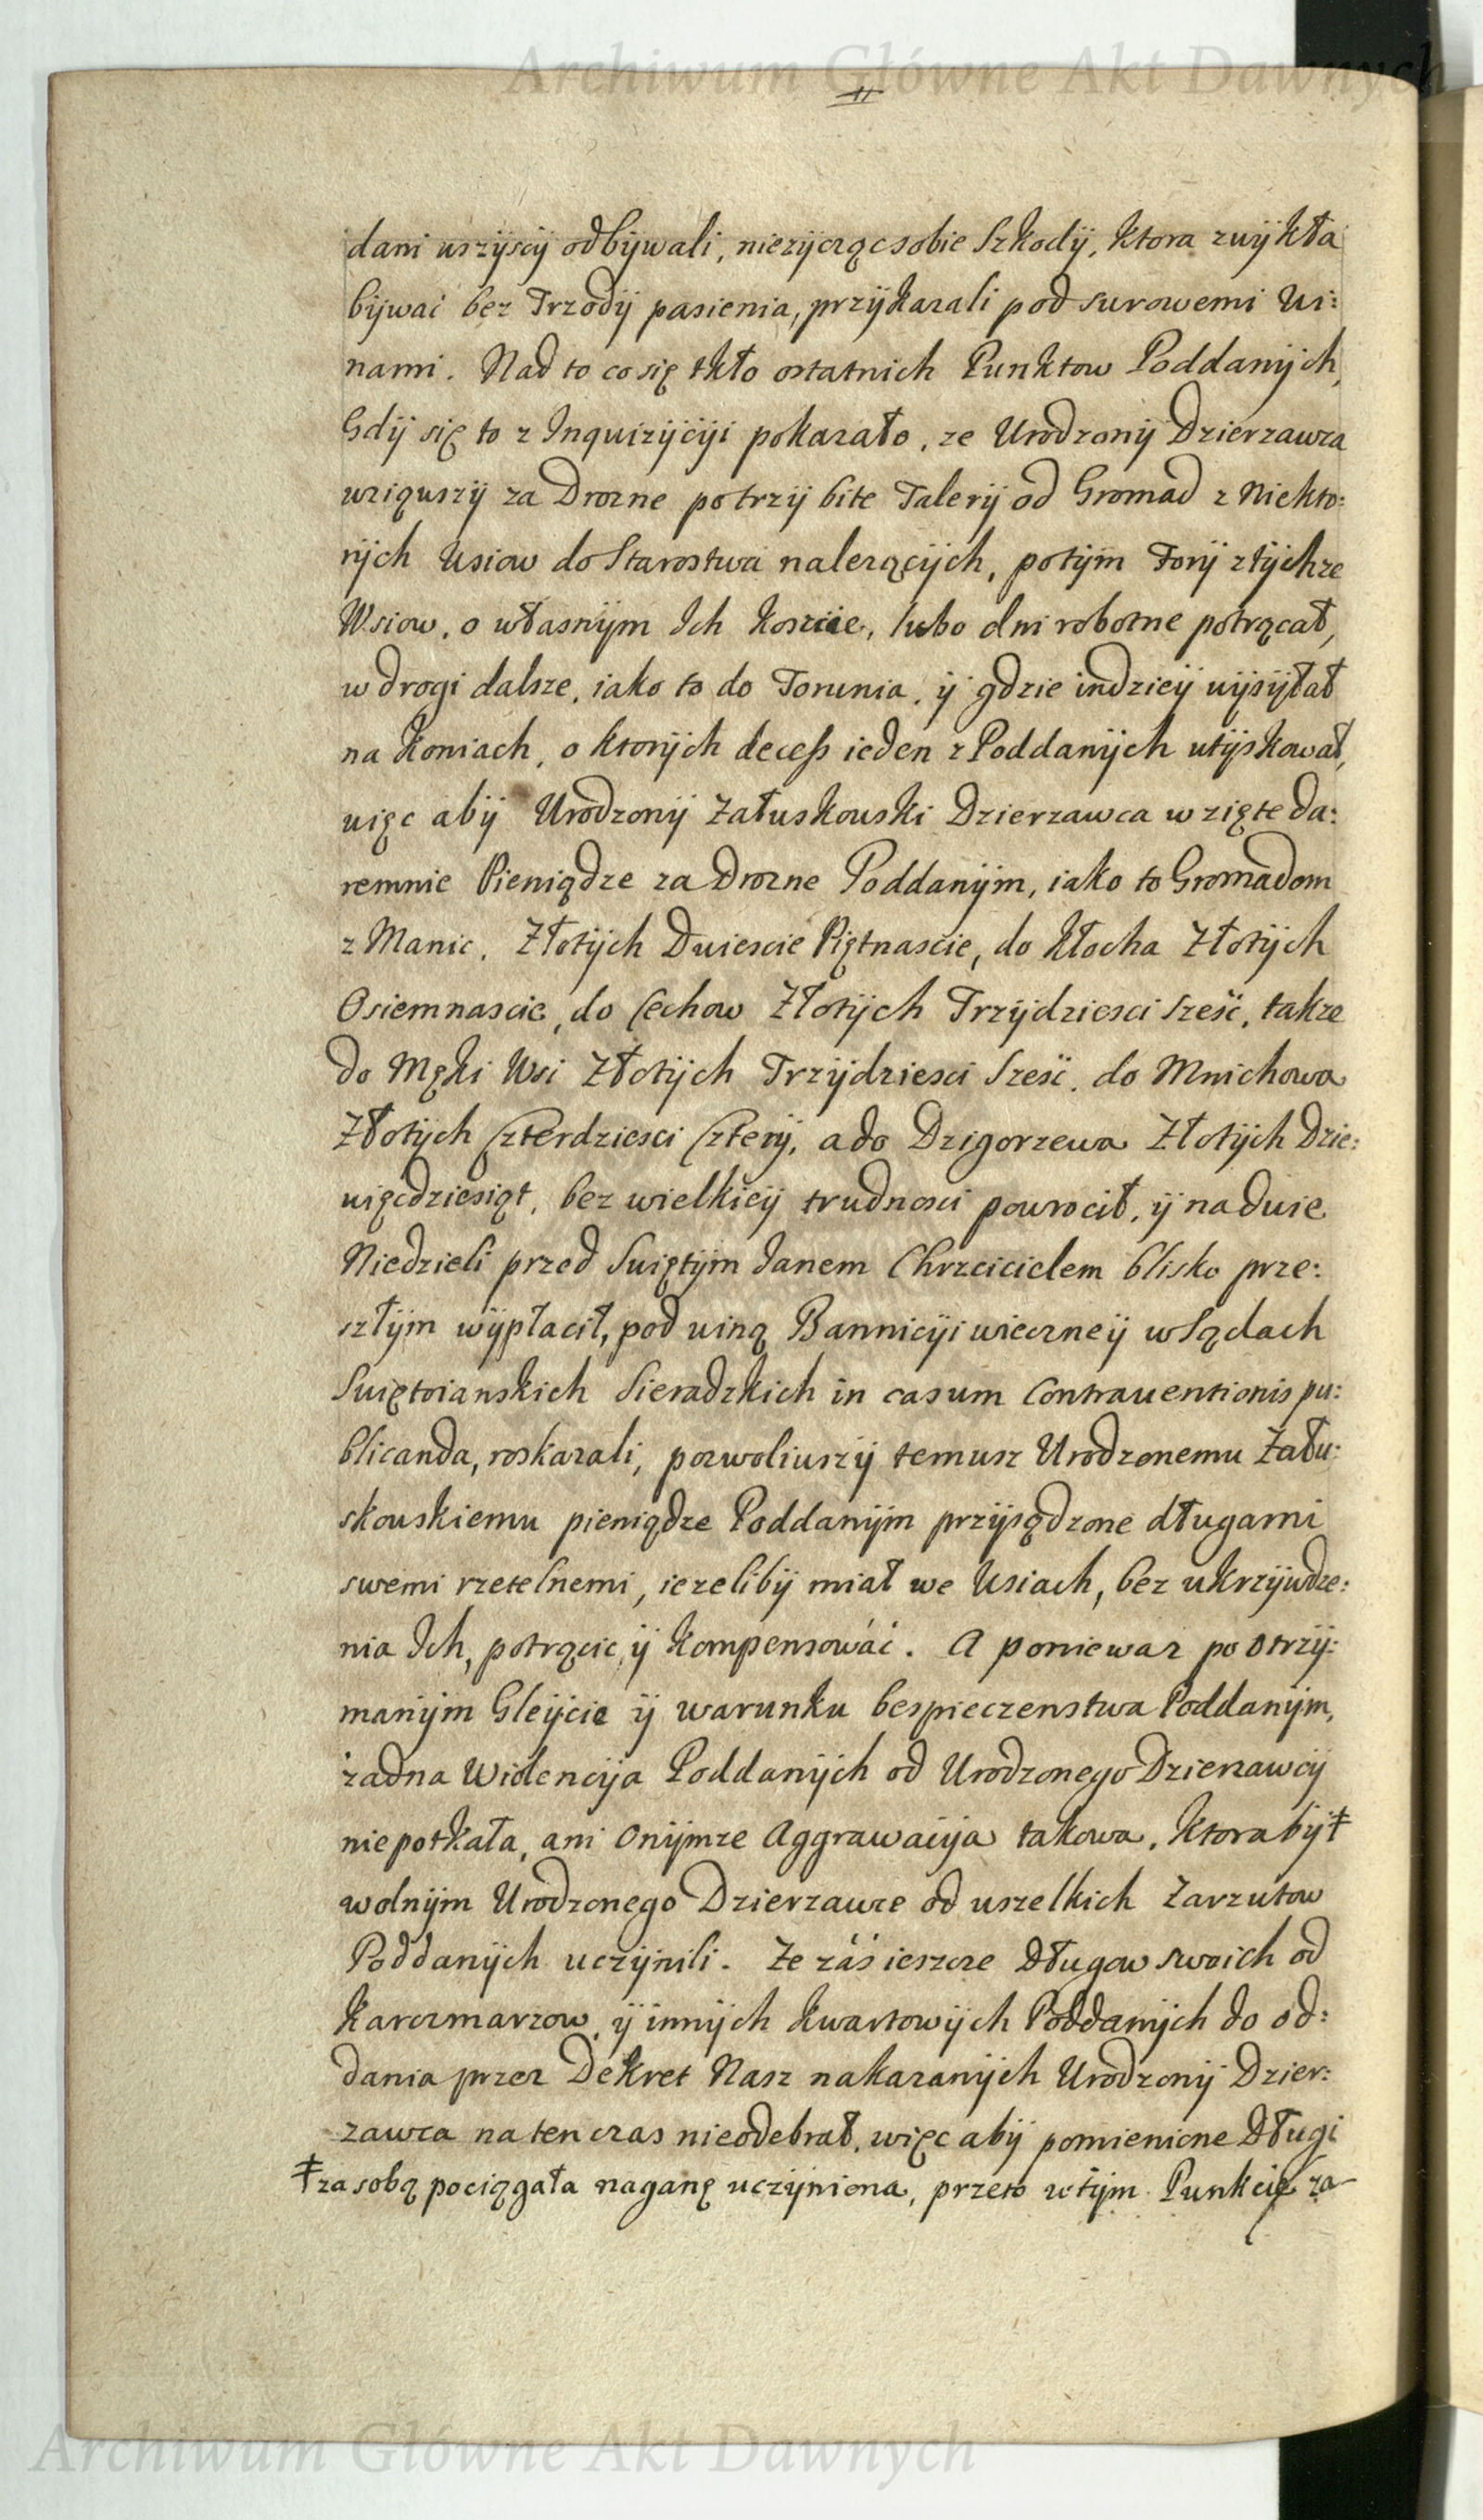 Archiwum Główne Akt Dawnych
11
dani wszyscy odbywali, nieżycząc sobie Szkody, Ktora zwykła
bywać bez Trzody pasienia, przykazali pod surowemi Wi:
nami. Nad to co się tkło ostatnich Punktow Poddanych,
Gdy się to z Inquizycyi pokazało, ze Urodzony Dzierzawca
wziąwszy za Drozne po trzy bite Talery od Gromad z Niekto:
rych Wsiow do Starostwa nalezących, potym Fory z tychze
Wsiow, o własnym Ich Koszcie, lubo dni robotne potrącał,
w drogi dalsze, iako to do Torunia, y gdzie indziey wysyłał
na Koniach, o ktorych decess ieden z Poddanych utyskował,
więc aby Urodzony Załuskowski Dzierzawca wzięte da:
remnie Pieniądze za Drozne Poddanym, iako to Gromadom
z Manic, Złotych Dwiescie Piętnascie, do Kłocka Złotych
Osiemnascie, do Czechow Złotych Trzydziesci Sześć, takze
do Męki Wsi Złotych Trzydziesci Sześć, do Mnichowa
Złotych Czterdziesci Cztery, a do Dzigorzewa Złotych Dzie:
więcdziesiąt, bez wielkiey trudnosci powrocił, y na dwie
Niedzieli przed Swiętym Janem Chrzcicielem blisko prze:
szłym wypłacił, pod winą Bannicyi wieczney w Sądach
Swiętoianskich Sieradzkich in casum Contrauentionis pu:
blicanda, roskazali, pozwoliwszy temusz Urodzonemu Zału:
skowskiemu pieniądze Poddanym przysądzone długami
swemi rzetelnemi, iezeliby miał we Wsiach, bez ukrzywdze:
nia Ich, potrącic, y Kompensowáć. A poniewaz po otrzy:
manym Gleycie y warunku bespieczenstwa Poddanym,
żadna Wiolencyja Poddanych od Urodzonego Dzierzawcy
niepotkała, ani Onymze Aggrawacyja takowa, Ktoraby ǂ
wolnym Urodzonego Dzierzawce od wszelkich Zarzutow
Poddanych uczynili. Ze záś ieszcze Długow swoich od
Karczmarzow, y innych Kwartowych Poddanych do od:
dania przez Dekret Nasz nakazanych Urodzony Dzier:
zawca na ten czas nieodebrał, więc aby pomienione Długi
ǂ za sobą pociągała naganę uczyniona, przeto w tym Punkcie za
Archiwum Główne Akt Dawnych